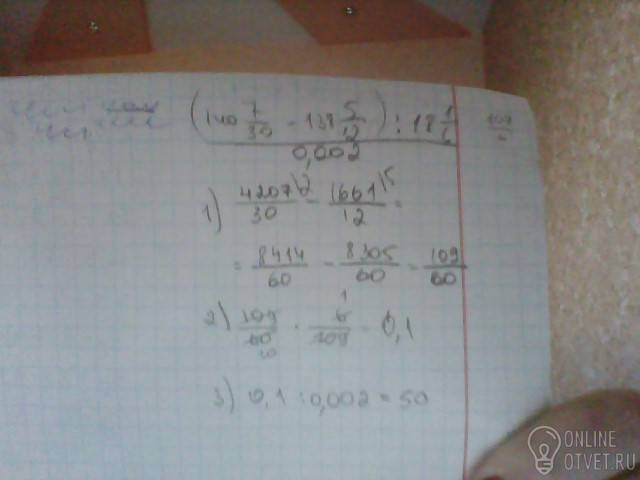 (140 7/30 - 138 5/12) : 18 1/6
0,002
1) 4207/30 \2 - 1661/12 \5 =
= 8414/60 - 8305/60 = 109/60
2) 109/60 10 · 6/109 1 = 0,1
3) 0,1 : 0,002 = 50
ONLINE
OTVET.RU